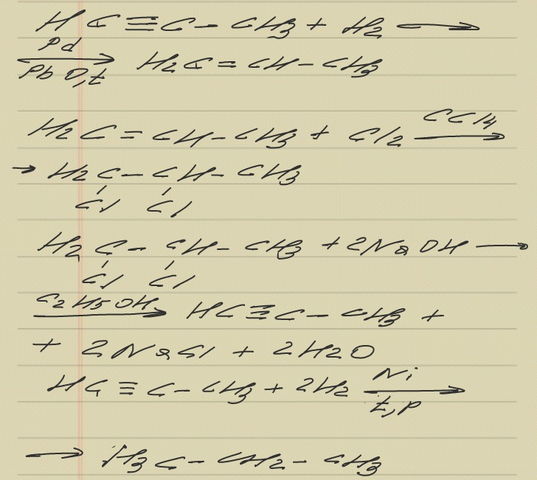 HC≡C-CH3 + H2 ⟶
Pd
⟶ H2C=CH-CH3
PbO,t
H2C=CH-CH3 + Cl2 ⟶ CCl4
→ H2C-CH-CH3
Cl Cl
H2C-CH-CH3 + 2NaOH ⟶
Cl Cl
C2H5OH ⟶ HC≡C-CH3 +
+ 2NaCl + 2H2O
HC≡C-CH3 + 2H2 ⟶ Ni
t,p
⟶ H3C-CH2-CH3